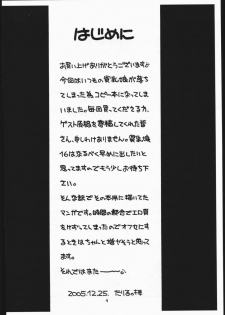 はじめに
お買い上げありがとうございます。
今回はいつもの貧乳娘が落ち
てしまった為コピー本になってしま
いました。毎回買ってくださる方、
ゲスト原稿を寄稿してくれた皆
さん、申しわけありません。貧乳娘
16はなるべく早めに出したいと
思ってますのでもう少しお待ち下
さい。
そんな訳でその本用に描いてた
マンガです。時間の都合でエロ質
をけずってしまったのでオフセにす
るときはちゃんと増やそうと思って
ます。
それではまた
2005.12.25.